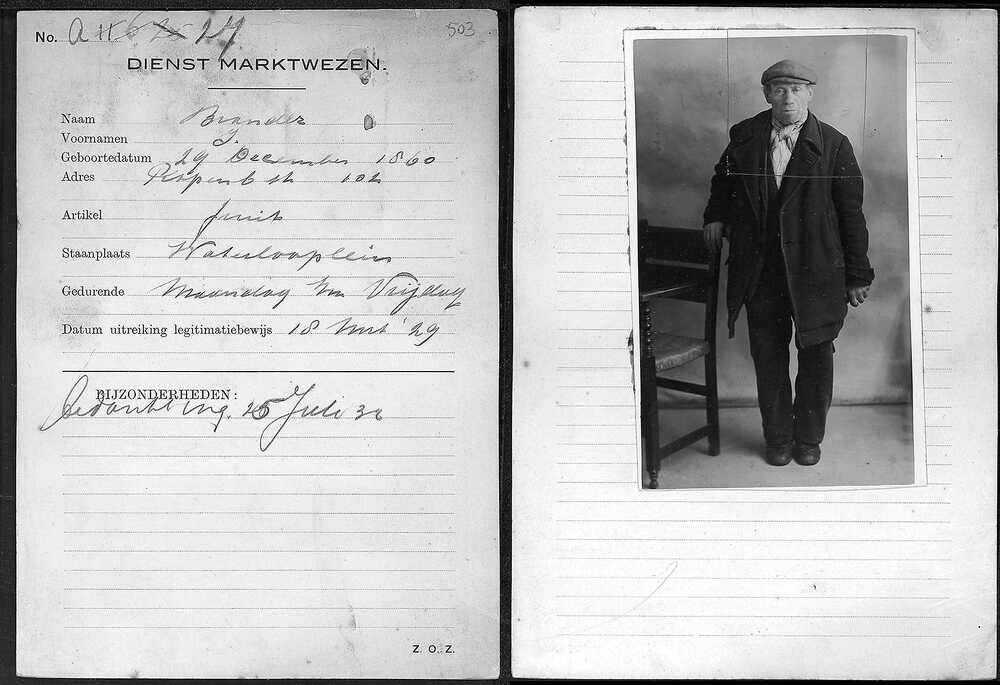 No. A 17 503
DIENST MARKTWEZEN.
Naam Brander
Voornamen J.
Geboortedatum 29 December 1860
Adres 102
Artikel fruit
Staanplaats Waterlooplein
Gedurende Maandag t/m Vrijdag
Datum uitreiking legitimatiebewijs 18 Mrt '29
BIJZONDERHEDEN:
Bedankt ing. 25 Juli 30
Z. O. Z.